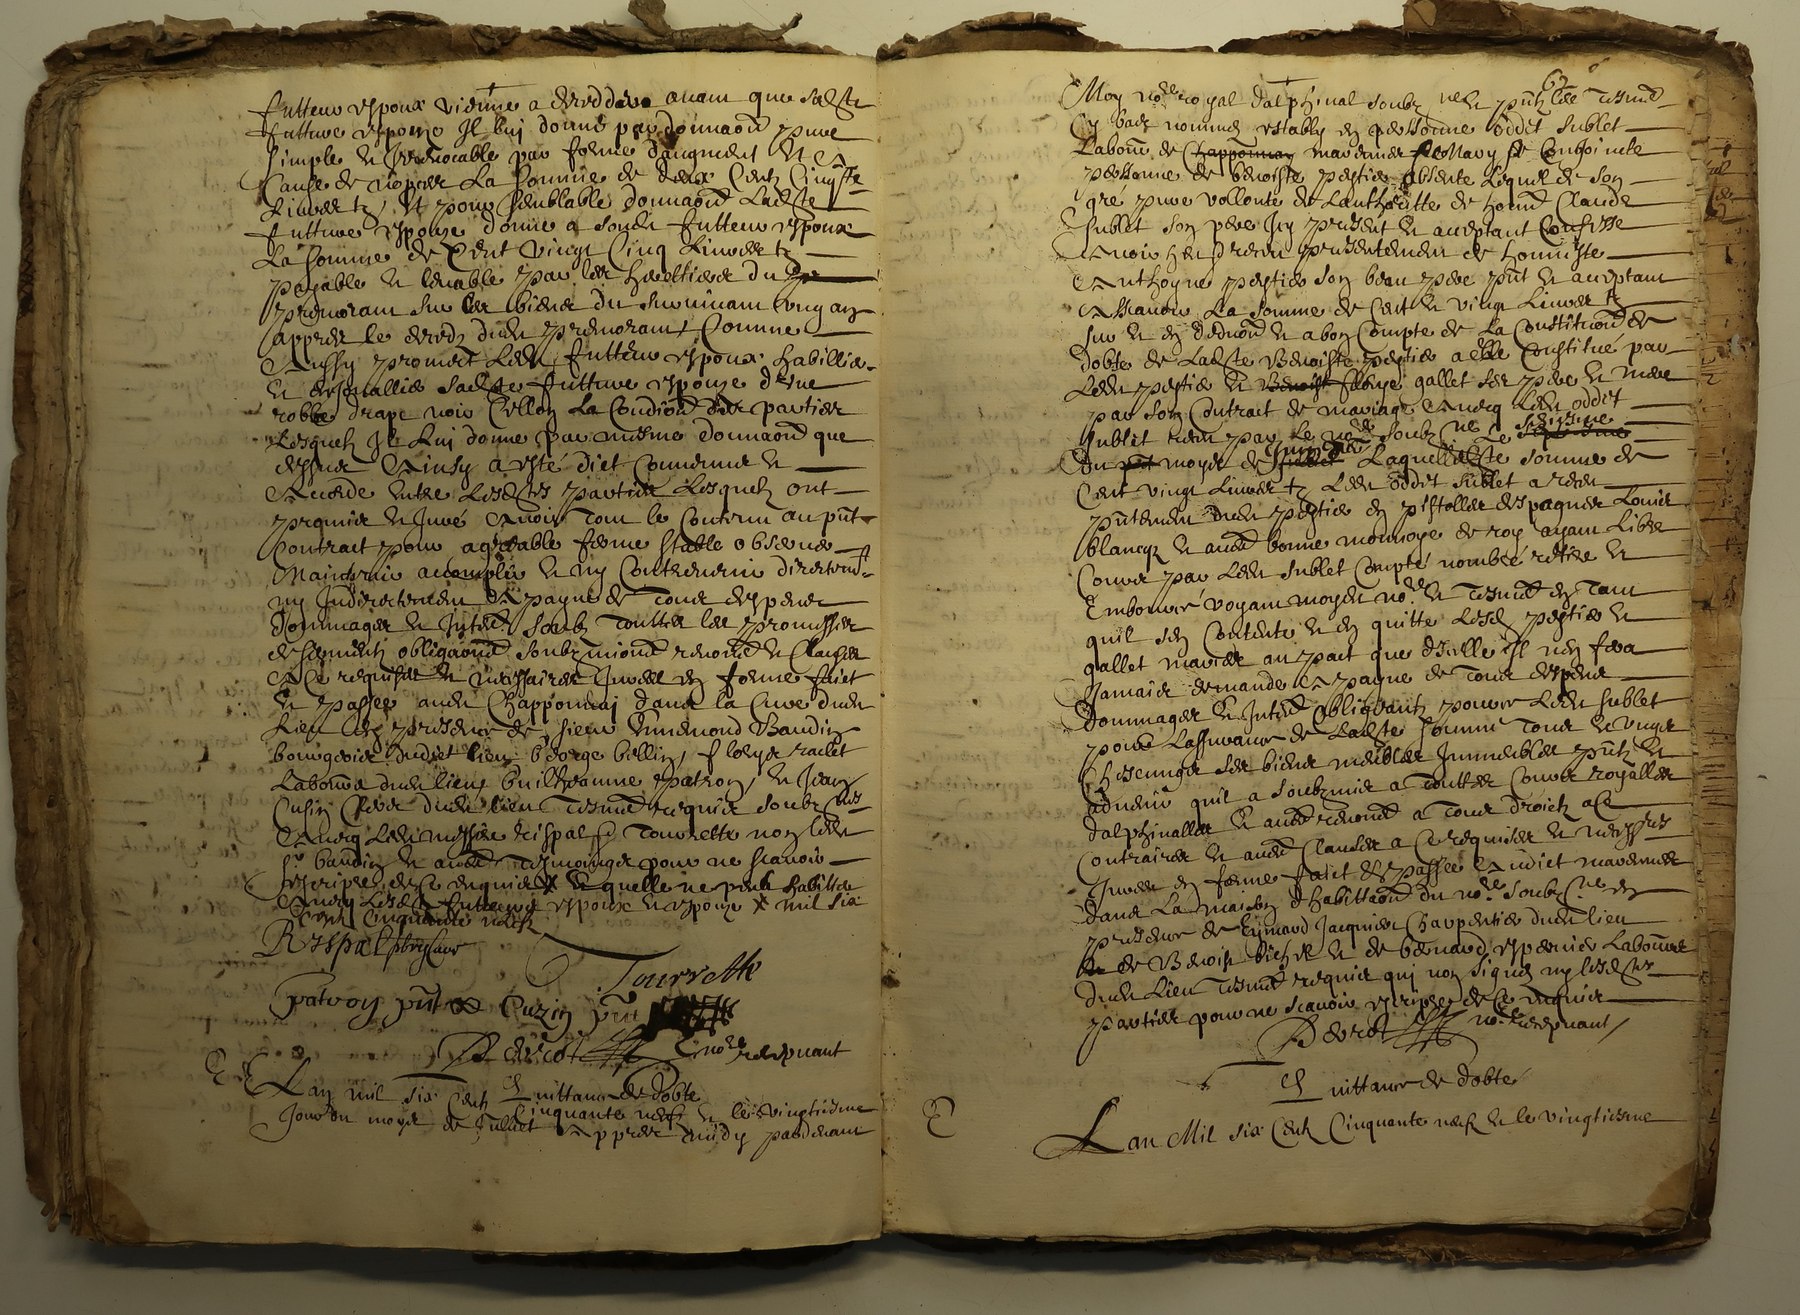 futteur espoux vienne a decedder avant que ladte
futture espouze Il luy donne par donnaon pure
simple et Irrevocable par forme daugment et
Cause de nopces La somme de deux Centz Cinqte
Livres tz, Et pour semblable donnaon Ladte
futture espouze donne a sondt futteur espoux
La somme de Cent vingt Cinq Livres tz
payable et levable par les herettiers du
premorant sur les biens du survivant ung an
appres le deces dudt premorant, Comme
Aussy promect Ledt futteur espoux habillier
et enjouallier ladte futture espouze dune
robbe drapt noir sellon La Condion des parties
Lesquelz Il Luy donne par mesme donnaon que
dessus Ainsy a esté dict Convenu et
Accordé entre Lesdtes parties Lesquelz ont
promis et Juré Avoir tout le Contenu au pnt
Contract pour agreable ferme stable observer
Maintenir accomplir et ny Contrevenir directemt
ny Indirectement A payne de tous despens
dommages et Interetz soubz touttes les promesses
sermentz obligaons soubzmions renons et Clauses
A Ce requises et necessaires Juree en forme faict
et passe audt Chapponnay dans la Cure dudt
Lieu en presence de sieur Ennemond Baudin
bourgeois dudict lieu, George billin, floryt raclet
Laboure dudt lieu Guilleaume patron, et Jean
Cusin Clerc dudt lieu tesmoins requis soubznes
Avecq Ledt messire rispal et Tourrette non ledt
sr baudin et autres tesmoings pour ne scavoir
escripre de Ce enquis X et quelle ne peult habitter
Avecq Lesdt futteurs espoux et espouze X mil six
Cent Cinquante neuf
Rispal ptre cure
Tourrette
patron pnt Cuzin pnt
Bercot nore recepvant
Quittance de dobte
Lan mil six Centz Cinquante neuf et le vingtiesme
Jour du moys de Juillet Appres midy pardevant
62
Moy nore royal dalphinal soubzne et pntz les tesmoins
Cy bas nommes estably en personne oddet sublet
Labour de Chapponnay marennes mary et Conjoincte
personne de benoiste pestier absente Lequel de son
gré pure vollonte de Lauthoritte de honn Claude
sublet son pere Icy present et aceptant Confesse
Avoir heu et receu presentement de honneste
Anthoyne pestier son beau pere pnt et aceptant
Assavoir La somme de Cent et vingt Livres tz
sur et en deduon et a bon Compte de La Constitution de
dobte de Ladte Benoiste pestier a elle Constitué par
Ledt pestier et Benoist florye gallet ses pere et mere
par son Contract de mariage Avecq Ledt oddet
sublet receu par Le nore soubzne Le seiziesme
du pnt moys de Laquelle dte somme de
Cent vingt Livres tz Ledt oddet sublet a receu
pntement dudt pestier en pistolles despagnes Louis
blancqz et autre bonne monnoye de roy ayant Libre
Cours par Ledt sublet Compté nombré retiré et
Emboursé voyant moydt nore et tesmoins en tant
quil sen Contente et en quitte Lesdt pestier et
gallet mariés au pact que dicelle Il nen fera
Jamais demande A payne de tous despens
dommages et Interetz obligeantz pource Ledt sublet
pour Lassurance de Ladte somme tous et ungs
Chescungs ses biens meubles Immeubles pntz et
advenir quil a soubzmis a touttes Cours royalles
dalphinalles et autres renons a tous droictz a Ce
Contraires et autres Clauses a Ce requises et necessres
Juree en forme faict et passe Audict marennes
dans La maison dhabittaon du nore soubzne en
presence de Eymard Jacquier Charpentier dudt lieu
de Benoist bichet et de bernard espernier Laboure
dudt Lieu tesmoins requis quy non signes ny lesdtes
parties pour ne scavoir escripre de Ce enquis
Bercot nore recepvant
Quittance de dobte
Lan Mil six Centz Cinquante neuf et le vingtiesme